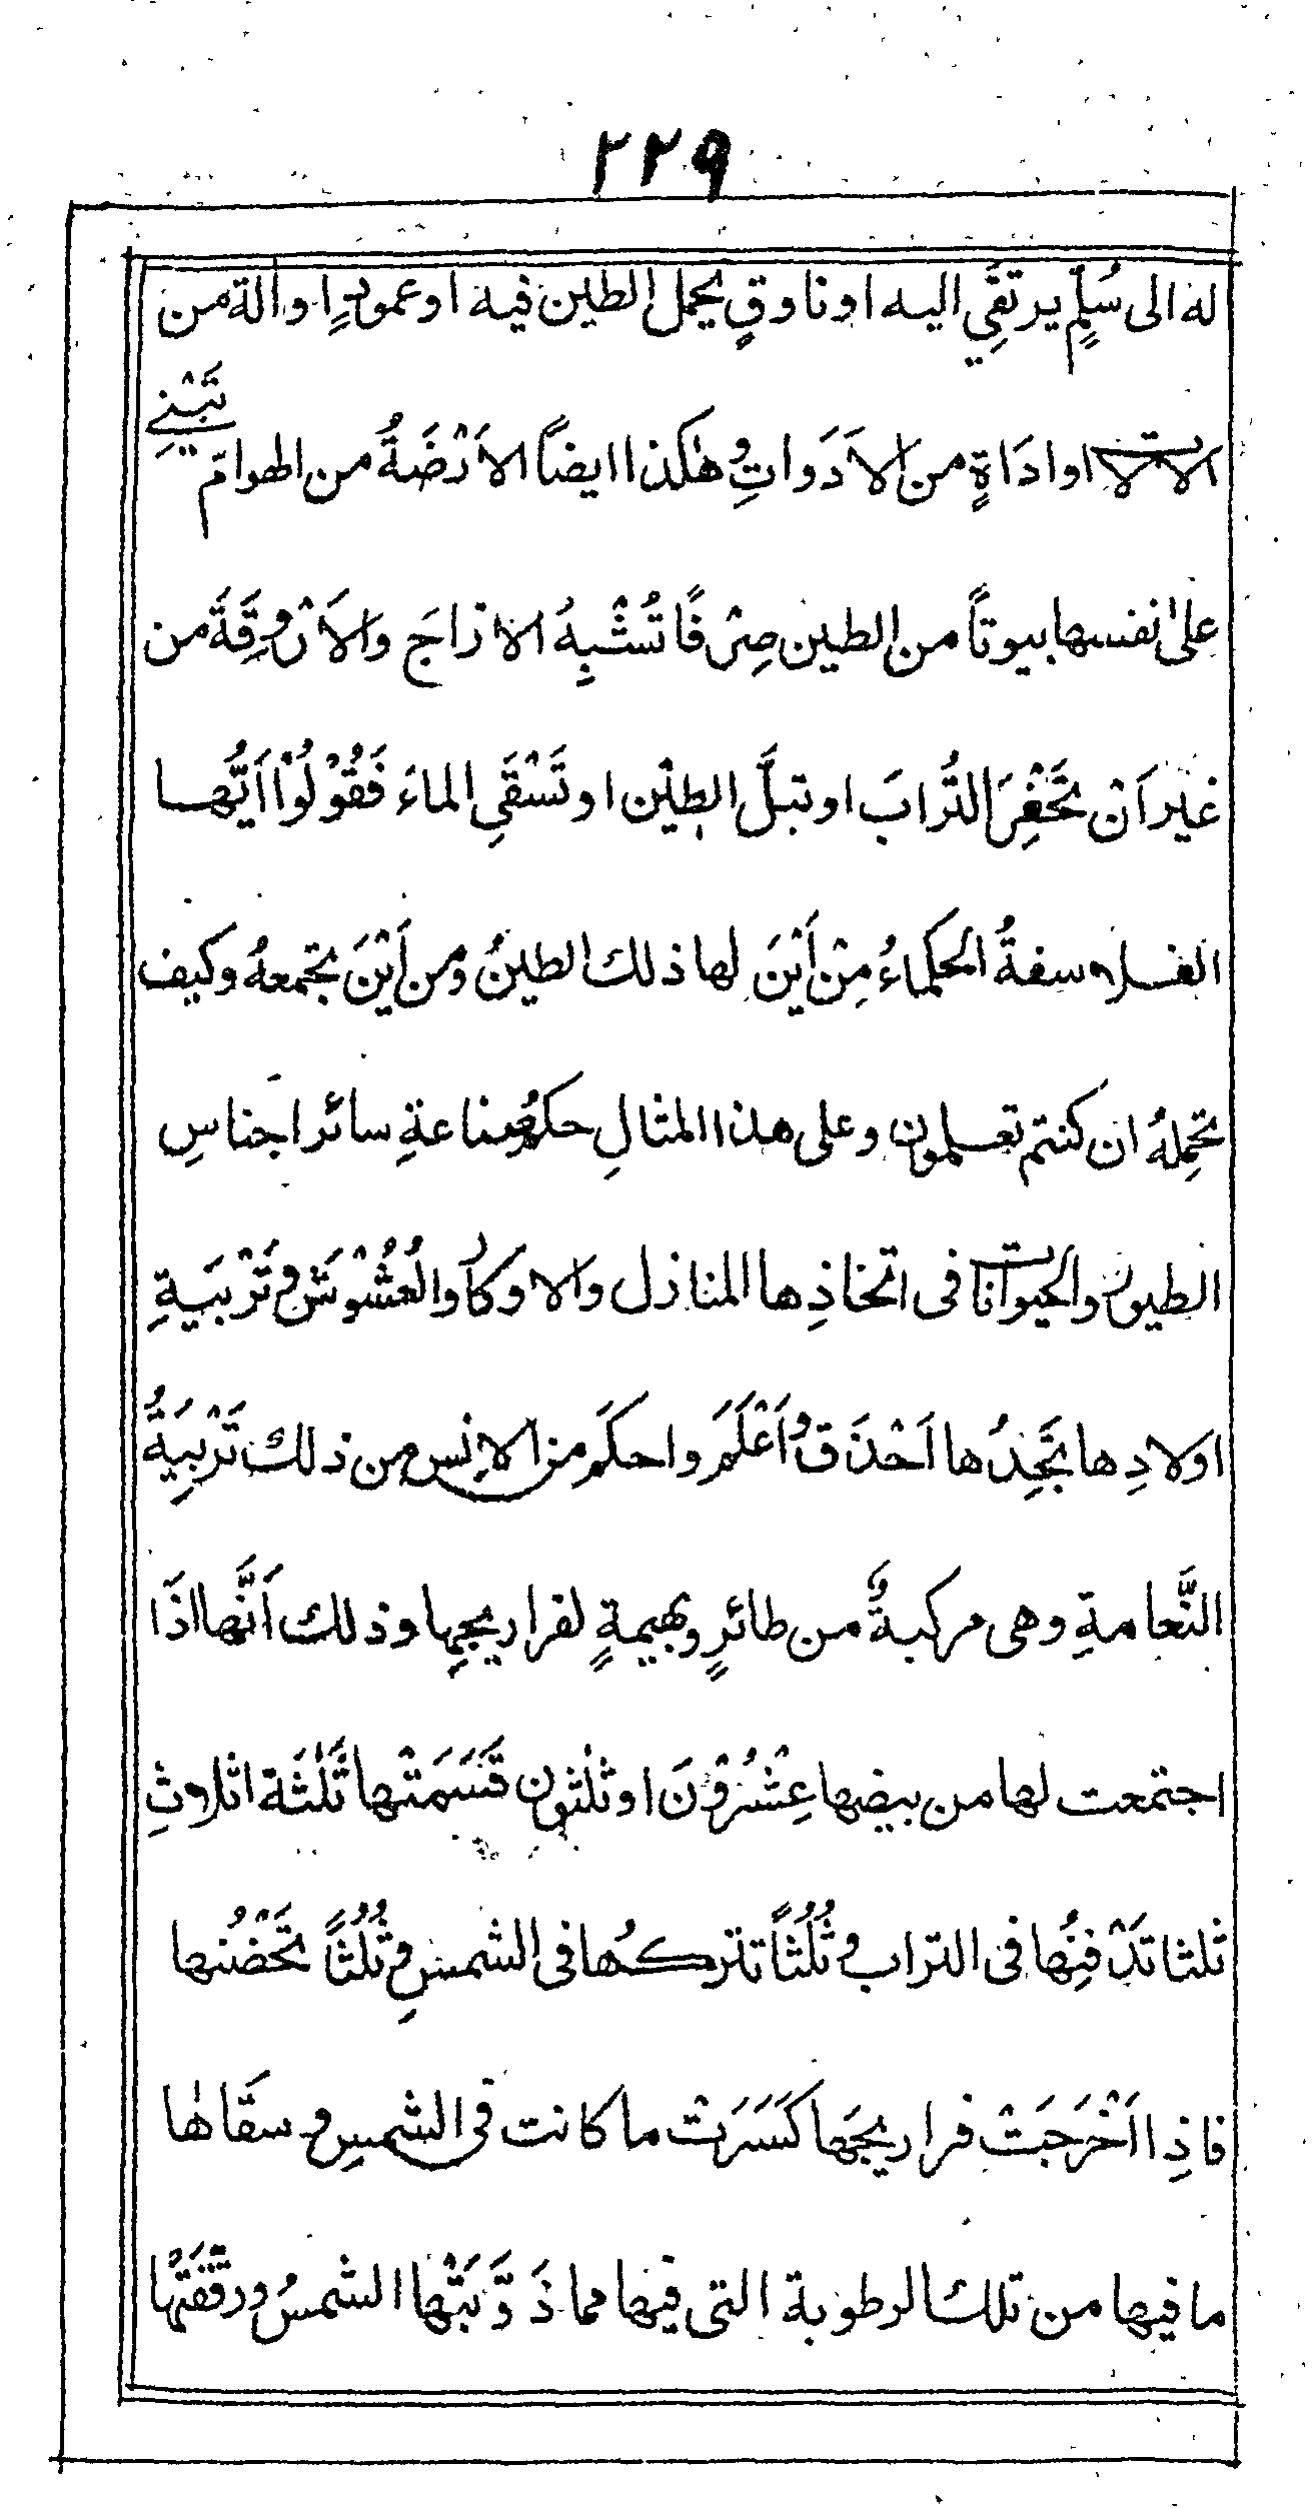 ٢٢٩
له الى سُلَّمٍ يرتقِي اليه او ناوقٍ يحمل الطين فيه او عمودٍ او آلة من
الالات او ادَاةٍ من الاَدَواتِ وهٰكذا ايضاً الاَرَضَةُ من الهوامّ تَبْنِي
علىٰ نفسها بيوتاً من الطين صِرْفًا تُشْبِهُ الازاجَ والاَرْوِقَةَ من
غير اَنْ تَحْفِرَ التُّرابَ او تبلَّ الطِيْن او تَسْقَيِ الماءَ فَقُوْلُوْا اَيُّها
الفلاسفةُ الحكماءُ مِنْ اَيْنَ لها ذلك الطينُ ومن اَيْنَ تجمعهُ وكيف
تحمِلهُ ان كنتم تعلمون وعلى هذا المثالِ حكم صناعةِ سائر اجناسِ
الطيور والحيوانات فى اتخاذِها المنازل والاوكار والعُشُوْشَ وتَرْبيَةِ
اولادِها تَجِدُها اَحْذَقَ واَعْلَمَ واحكَمَ من الانِس من ذلك تَرْبِيَةُ
النَّعامةِ وهى مركبةٌ من طائرٍ وبهيمةٍ لفراريجها وذلك اَنَّها اذَا
اجتمعت لها من بيضها عِشْرُوْنَ او ثلٰثون قَسَمَتْها ثَلٰثَة اثلاثٍ
ثلثا تَدْفِنُها فى التراب وثُلُثاً تتركُها فى الشمسِ وثُلُثاً تَحْضُنها
فاذِا اَخْرَجَتْ فراريجَها كَسَرَتْ ما كانت فى الشمسِ وسقَاهٰا
ما فيها من تلك الرطوبة التى فيها مما ذَوَّبَتْها الشمسُ ورقَّقَتْها